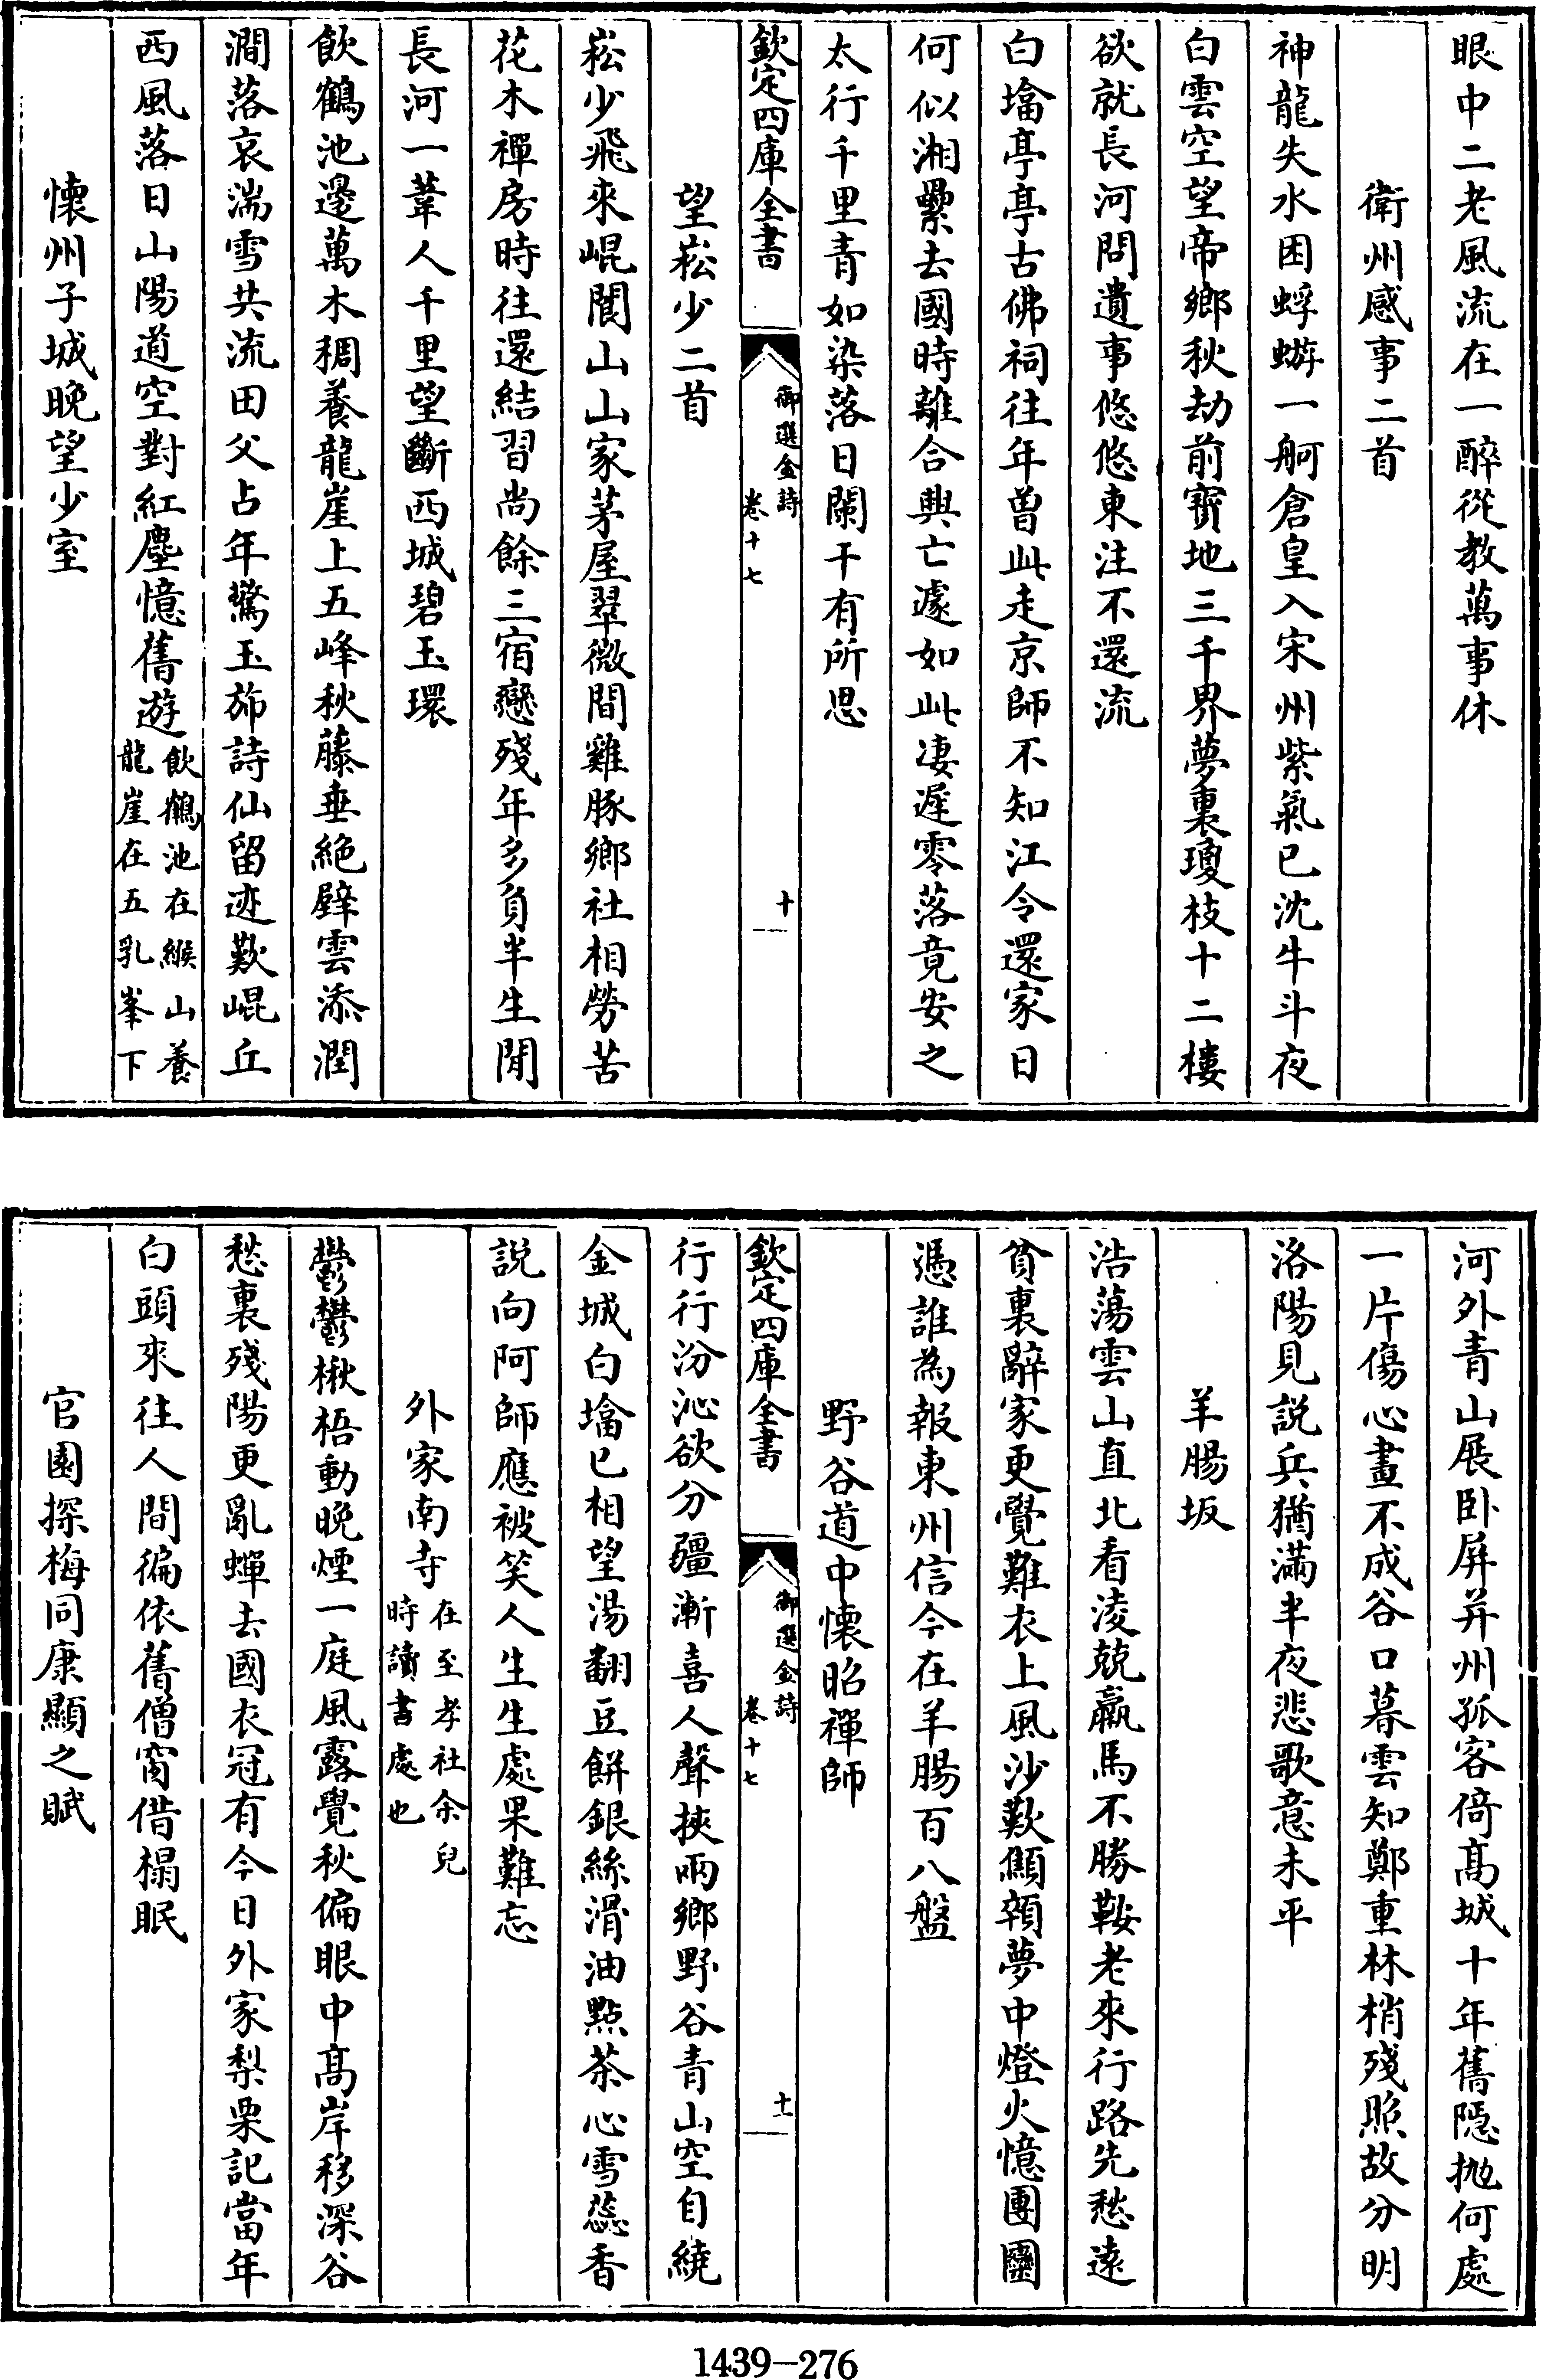 眼中二老風流在一醉從教萬事休
衛州感事二首
神龍失水困蜉蝣一舸倉皇入宋州紫氣已沈牛斗夜
白雲空望帝鄉秋劫前寶地三千界夢裏瓊枝十二樓
欲就長河問遺事悠悠東注不還流
白塔亭亭古佛祠往年曾此走京師不知江令還家日
何似湘纍去國時離合興亡遽如此凄遲零落竟安之
太行千里青如染落日闌干有所思
欽定四庫全書
御選金詩
卷十七
十
望崧少二首
崧少飛來崐閬山山家茅屋翠微間雞豚鄉社相勞苦
花木禪房時往還結習尚餘三宿戀殘年多負半生閒
長河一葦人千里望斷西城碧玉環
飲鶴池邊萬木稠養龍崖上五峰秋藤垂絕壁雲添潤
澗落哀湍雪共流田父占年驚玉斾詩仙留迹歎崐丘
西風落日山陽道空對紅塵憶舊遊飲鶴池在緱山養
龍崖在五乳峯下
懷州子城晚望少室
河外青山展卧屏并州孤客倚高城十年舊隱抛何處
一片傷心畫不成谷口暮雲知鄭重林梢殘照故分明
洛陽見說兵猶滿半夜悲歌意未平
羊腸坂
浩蕩雲山直北看淩兢羸馬不勝鞍老來行路先愁遠
貧裏辭家更覺難衣上風沙歎顦顇夢中燈火憶團圞
憑誰為報東州信今在羊腸百八盤
野谷道中懷昭禪師
欽定四庫全書
御選金詩
卷十七
十一
行行汾沁欲分疆漸喜人聲挾兩鄉野谷青山空自繞
金城白塔已相望湯翻豆餅銀絲滑油點茶心雪蕊香
說向阿師應被笑人生生處果難忘
外家南寺在至孝社余兒
時讀書處也
鬱鬱楸梧動晚煙一庭風露覺秋偏眼中高岸移深谷
愁裏殘陽更亂蟬去國衣冠有今日外家梨栗記當年
白頭來往人間徧依舊僧窗借榻眠
官園探梅同康顯之賦
1439—276